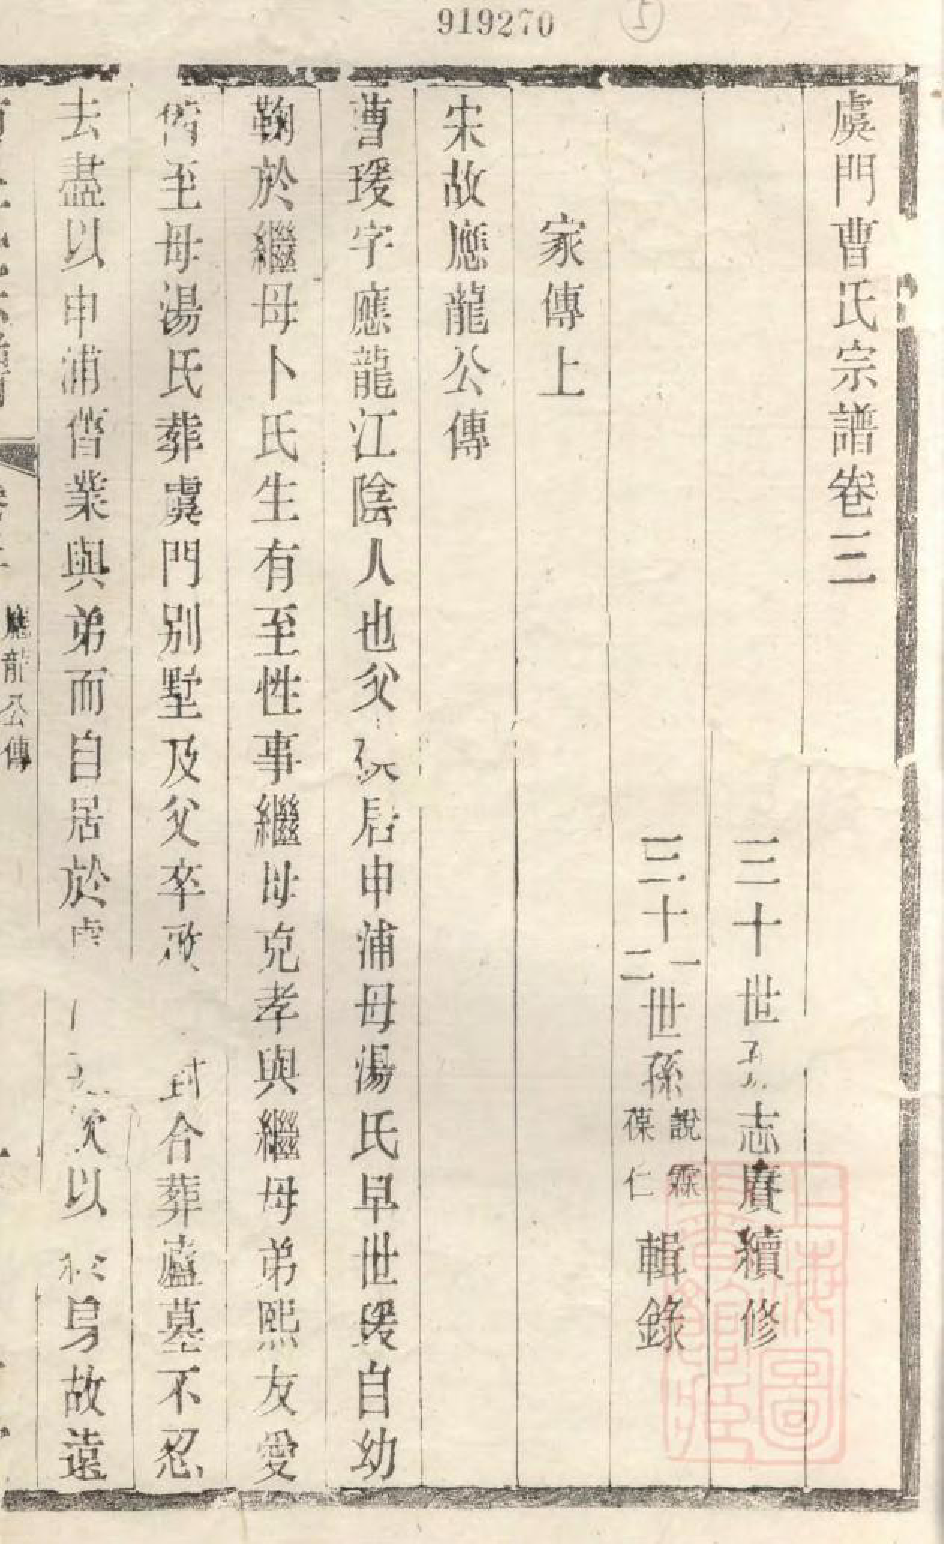 919270
5
虞門曹氏宗譜卷三
三十世孫志賡續修
三十一二世孫說霖葆仁輯錄
家傳上
宋故應龍公傳
曹瑗字應龍江陰人也父居申浦母湯氏早世瑗自幼
鞠於繼母卜氏生有至性事繼母克孝與繼母弟熙友愛
備至母湯氏葬虞門別墅及父卒啟封合葬廬墓不忍
去盡以申浦舊業與弟而自居於虞次以身故遠
應龍公傳
上海圖書館藏